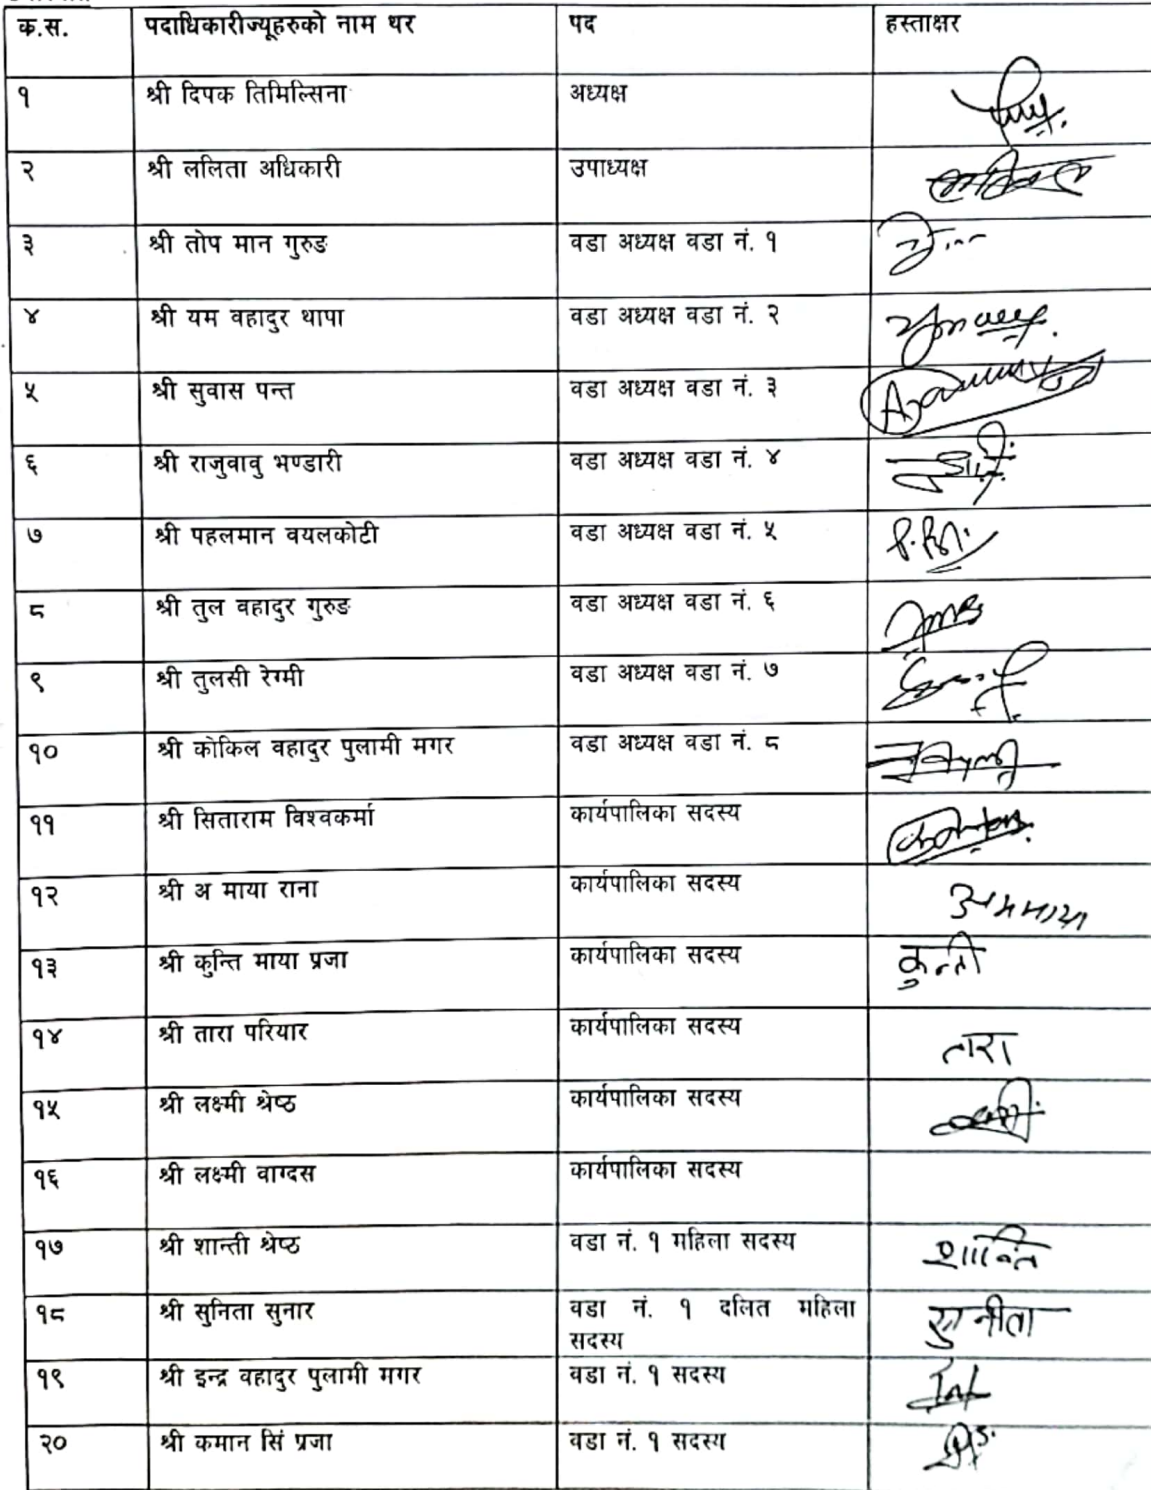 क.स. पदाधिकारीज्यूहरुको नाम थर पद हस्ताक्षर
१ श्री दिपक तिमिल्सिना अध्यक्ष
२ श्री ललिता अधिकारी उपाध्यक्ष
३ श्री तोप मान गुरुङ वडा अध्यक्ष वडा नं. १
४ श्री यम वहादुर थापा वडा अध्यक्ष वडा नं. २
५ श्री सुवास पन्त वडा अध्यक्ष वडा नं. ३
६ श्री राजुवावु भण्डारी वडा अध्यक्ष वडा नं. ४
७ श्री पहलमान वयलकोटी वडा अध्यक्ष वडा नं. ५
८ श्री तुल वहादुर गुरुङ वडा अध्यक्ष वडा नं. ६
९ श्री तुलसी रेग्मी वडा अध्यक्ष वडा नं. ७
१० श्री कोकिल वहादुर पुलामी मगर वडा अध्यक्ष वडा नं. ८
११ श्री सिताराम विश्वकर्मा कार्यपालिका सदस्य
१२ श्री अ माया राना कार्यपालिका सदस्य
१३ श्री कुन्ति माया प्रजा कार्यपालिका सदस्य कुन्ती
१४ श्री तारा परियार कार्यपालिका सदस्य तारा
१५ श्री लक्ष्मी श्रेष्ठ कार्यपालिका सदस्य
१६ श्री लक्ष्मी वाग्दस कार्यपालिका सदस्य
१७ श्री शान्ती श्रेष्ठ वडा नं. १ महिला सदस्य शान्ति
१८ श्री सुनिता सुनार वडा नं. १ दलित महिला सुनीता
सदस्य
१९ श्री इन्द्र वहादुर पुलामी मगर वडा नं. १ सदस्य
२० श्री कमान सिं प्रजा वडा नं. १ सदस्य